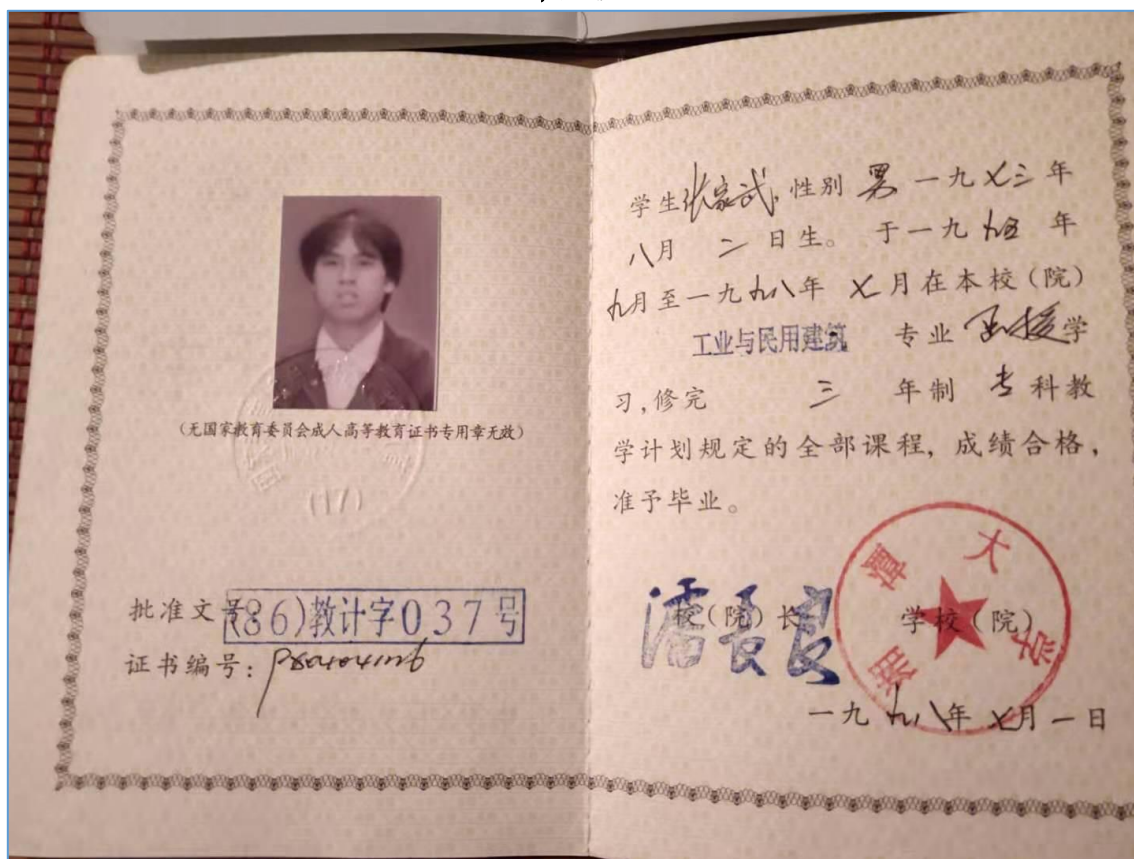 (无国家教育委员会成人高等教育证书专用章无效)
(17)
批准文号:(86)教计字037号
证书编号:
学生张家武 性别 男 一九七三年
八月 二 日生。 于一九九五 年
九月至一九九八年 七月在本校(院)
工业与民用建筑 专业 函授学
习,修完 三 年制 专科教
学计划规定的全部课程,成绩合格,
准予毕业。
校(院)长 学校(院)
潘长良
湘潭大学
一九九八年七月一日